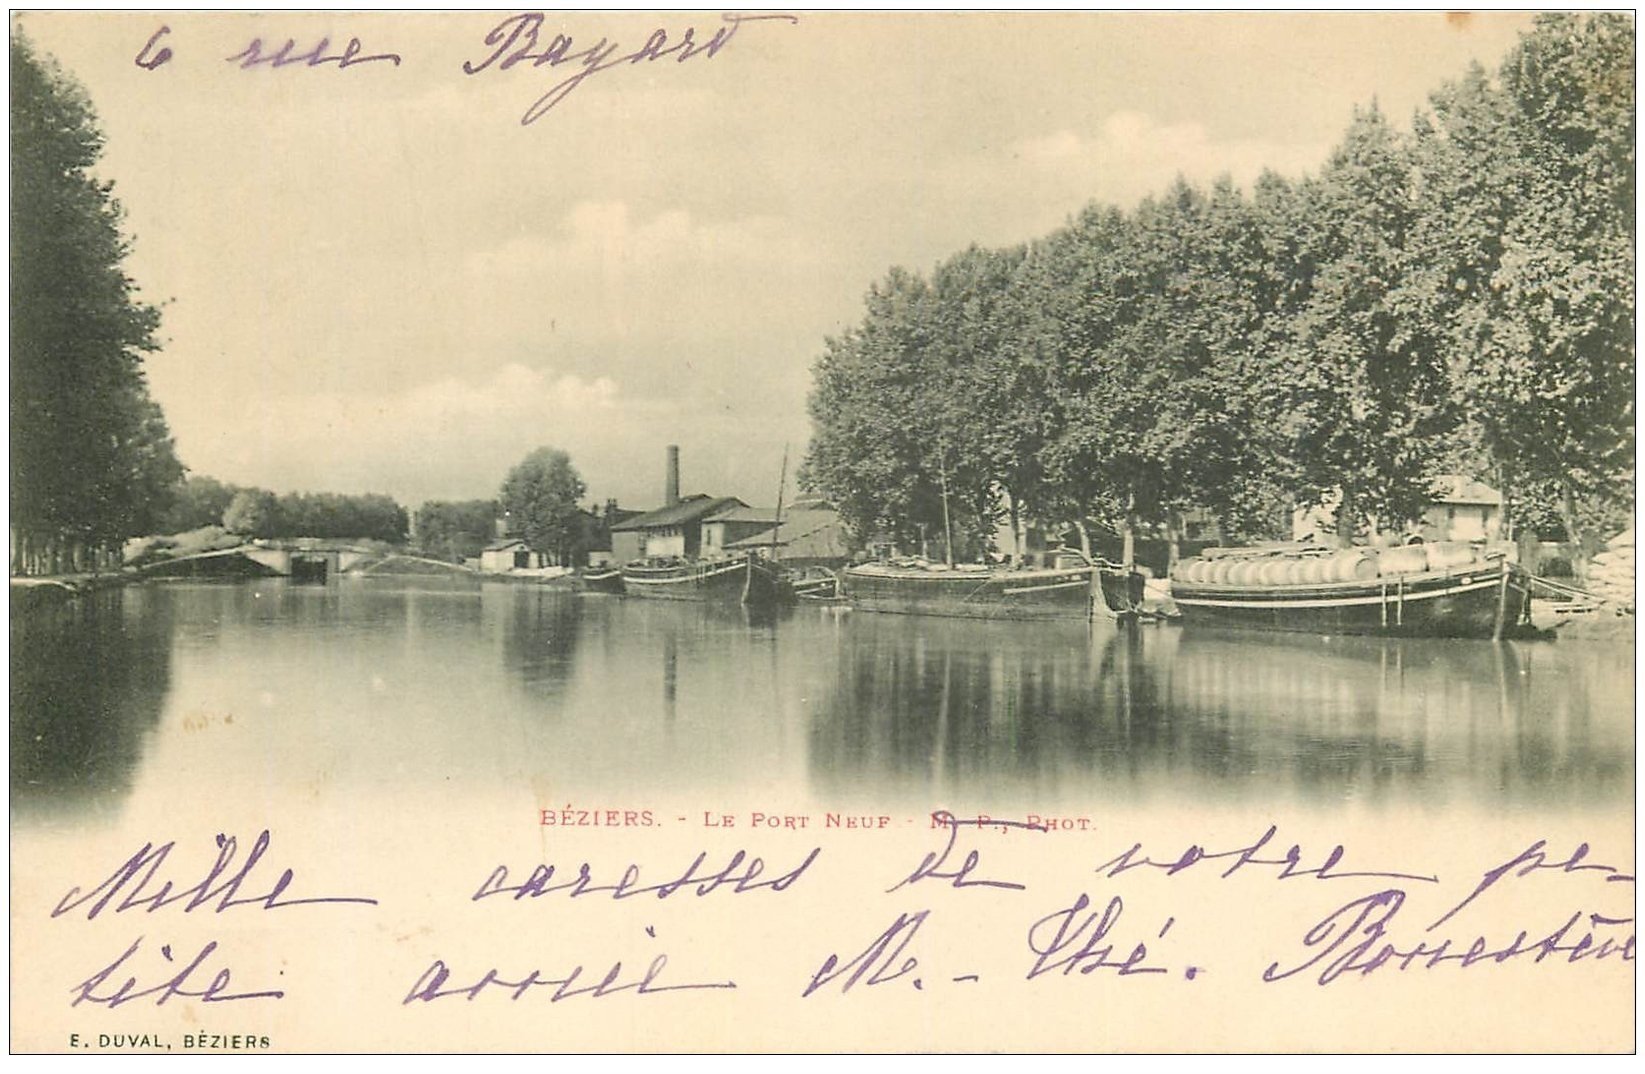 6 rue Bayard
BÉZIERS. - LE PORT NEUF - M. P., PHOT.
Mille caresses de votre pe-
tite amie M.- Thé.
E. DUVAL, BÉZIERS